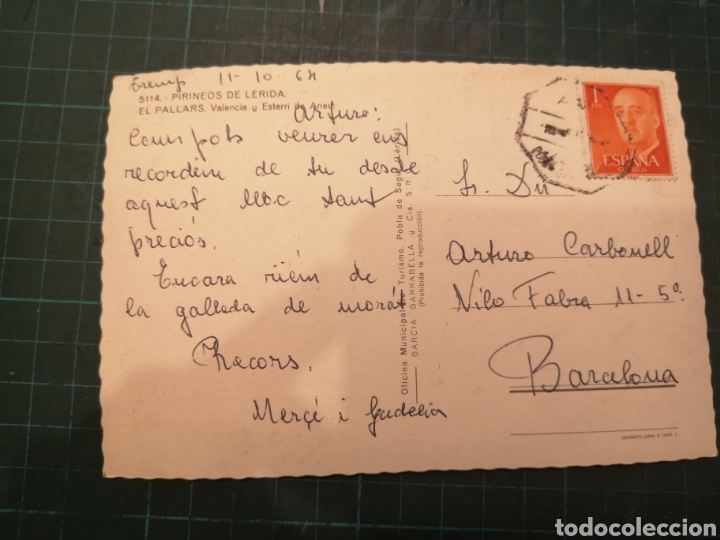 Tremp 11-10-64
5114.- PIRINEOS DE LERIDA.
EL PALLARS. Valencia y Esterri de Aneu.
Arturo:
Com pots veurer ens
recordem de tu desde
aquest lloc tant
preciós.
Encara riém de
la gallada de
Recors.
Merçé i Gudelia
Oficina Municipal de Turismo. Pobla de Segur (Lérida)
GARCIA GARRABELLA y Cía. S. R.
(Prohibida la reproducción)
1 PTA
ESPAÑA
CORREOS
Sr. Dn
Arturo Carbonell
Nilo Fabra 11-5º
Barcelona
DEPOSITO LEGAL B.
todocoleccion